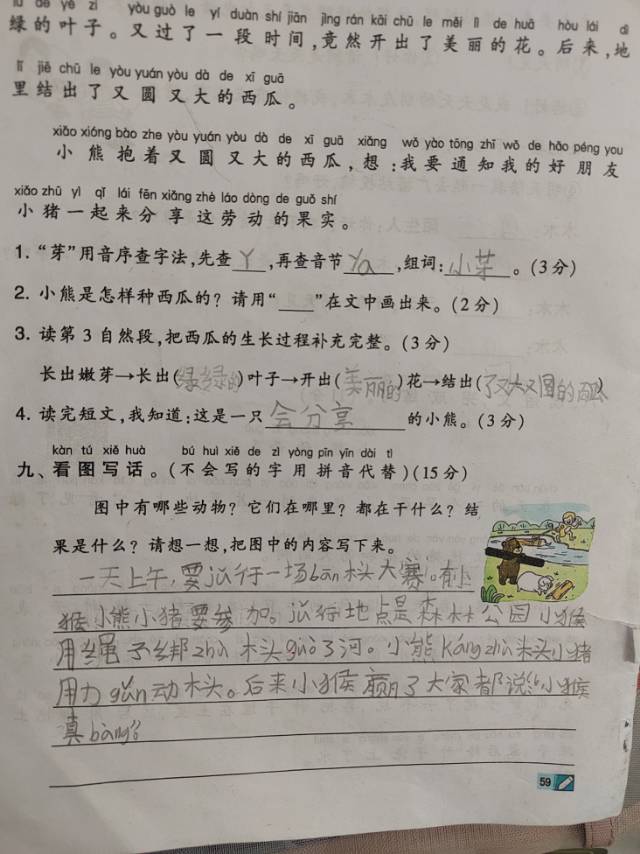 lǜ de yè zi yòu guò le yí duàn shí jiān jìng rán kāi chū le měi lì de huā hòu lái dì
绿的叶子。又过了一段时间,竟然开出了美丽的花。后来,地
lǐ jiē chū le yòu yuán yòu dà de xī guā
里结出了又圆又大的西瓜。
xiǎo xióng bào zhe yòu yuán yòu dà de xī guā xiǎng wǒ yào tōng zhī wǒ de hǎo péng you
小熊抱着又圆又大的西瓜,想:我要通知我的好朋友
xiǎo zhū yì qǐ lái fēn xiǎng zhè láo dòng de guǒ shí
小猪一起来分享这劳动的果实。
1. “芽”用音序查字法,先查 Y ,再查音节 Ya ,组词: 小芽 。(3分)
2. 小熊是怎样种西瓜的?请用“____”在文中画出来。(2分)
3. 读第3自然段,把西瓜的生长过程补充完整。(3分)
长出嫩芽→长出(绿绿的)叶子→开出(美丽的)花→结出(了又大又圆的西瓜)
4. 读完短文,我知道:这是一只 会分享 的小熊。(3分)
kàn tú xiě huà bú huì xiě de zì yòng pīn yīn dài tì
九、看图写话。(不会写的字用拼音代替)(15分)
图中有哪些动物?它们在哪里?都在干什么?结
果是什么?请想一想,把图中的内容写下来。
一天上午,要举行一场ban木头大赛。有小
猴小熊小猪要参加。举行地点是森林公园小猴
用绳子绑zhù木头guò了河。小熊káng zhù木头小猪
用力gǔn动木头。后来小猴赢了大家都说:小猴
真bàng!
59